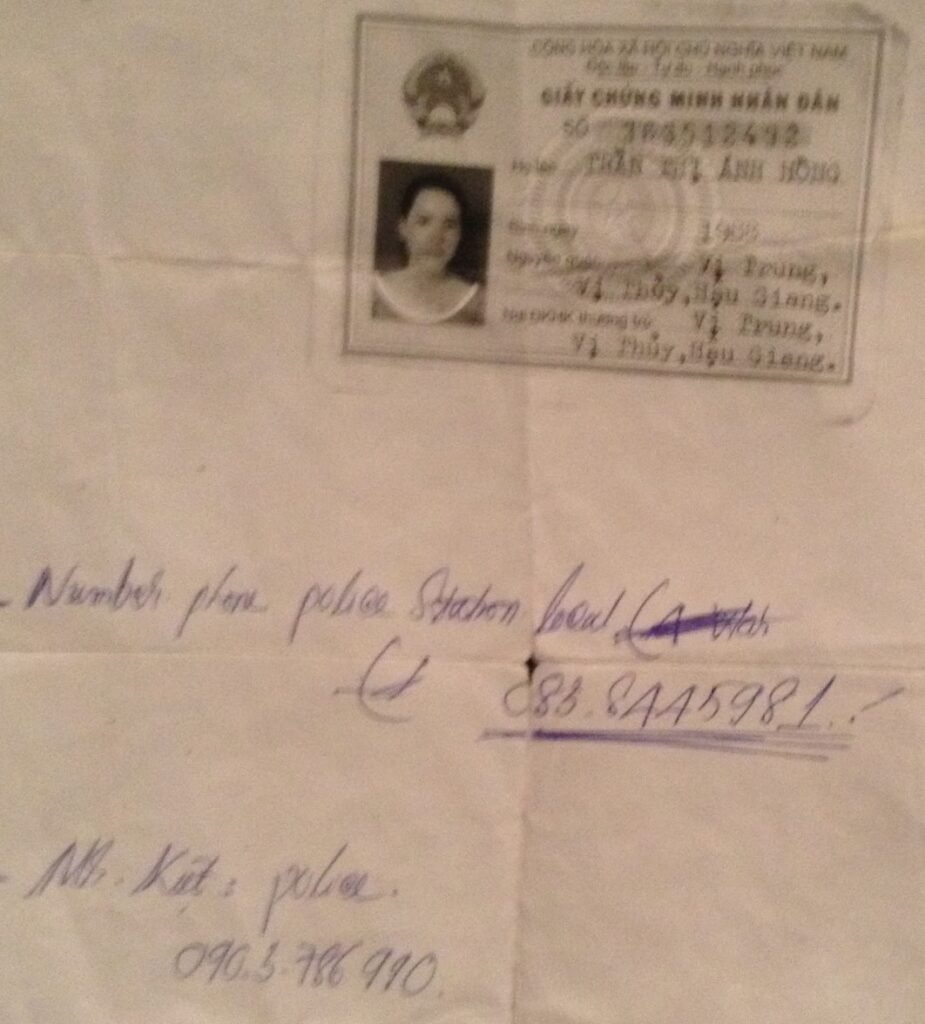 CỘNG HÒA XÃ HỘI CHỦ NGHĨA VIỆT NAM
Độc lập - Tự do - Hạnh phúc
GIẤY CHỨNG MINH NHÂN DÂN
SỐ
Họ tên TRẦN THỊ ÁNH HỒNG
Sinh ngày
Nguyên quán Vị Trung,
Vị Thủy, Hậu Giang.
Nơi ĐKHK thường trú Vị Trung,
Vị Thủy, Hậu Giang.
- Number phone police Station local
083.8445981.
- Mr. Kiệt : police.
090.3.786